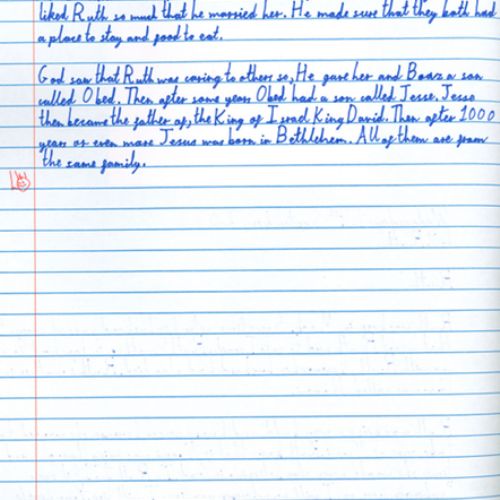 liked Ruth so much that he married her. He made sure that they both had
a place to stay and food to eat.
God saw that Ruth was caring to others so, He gave her and Boaz a son
called Obed. Then after some years Obed had a son called Jesse. Jesse
then became the father of, the King of Israel King David. Then after 1000
years or even more Jesus was born in Bethlehem. All of them are from
the same family.